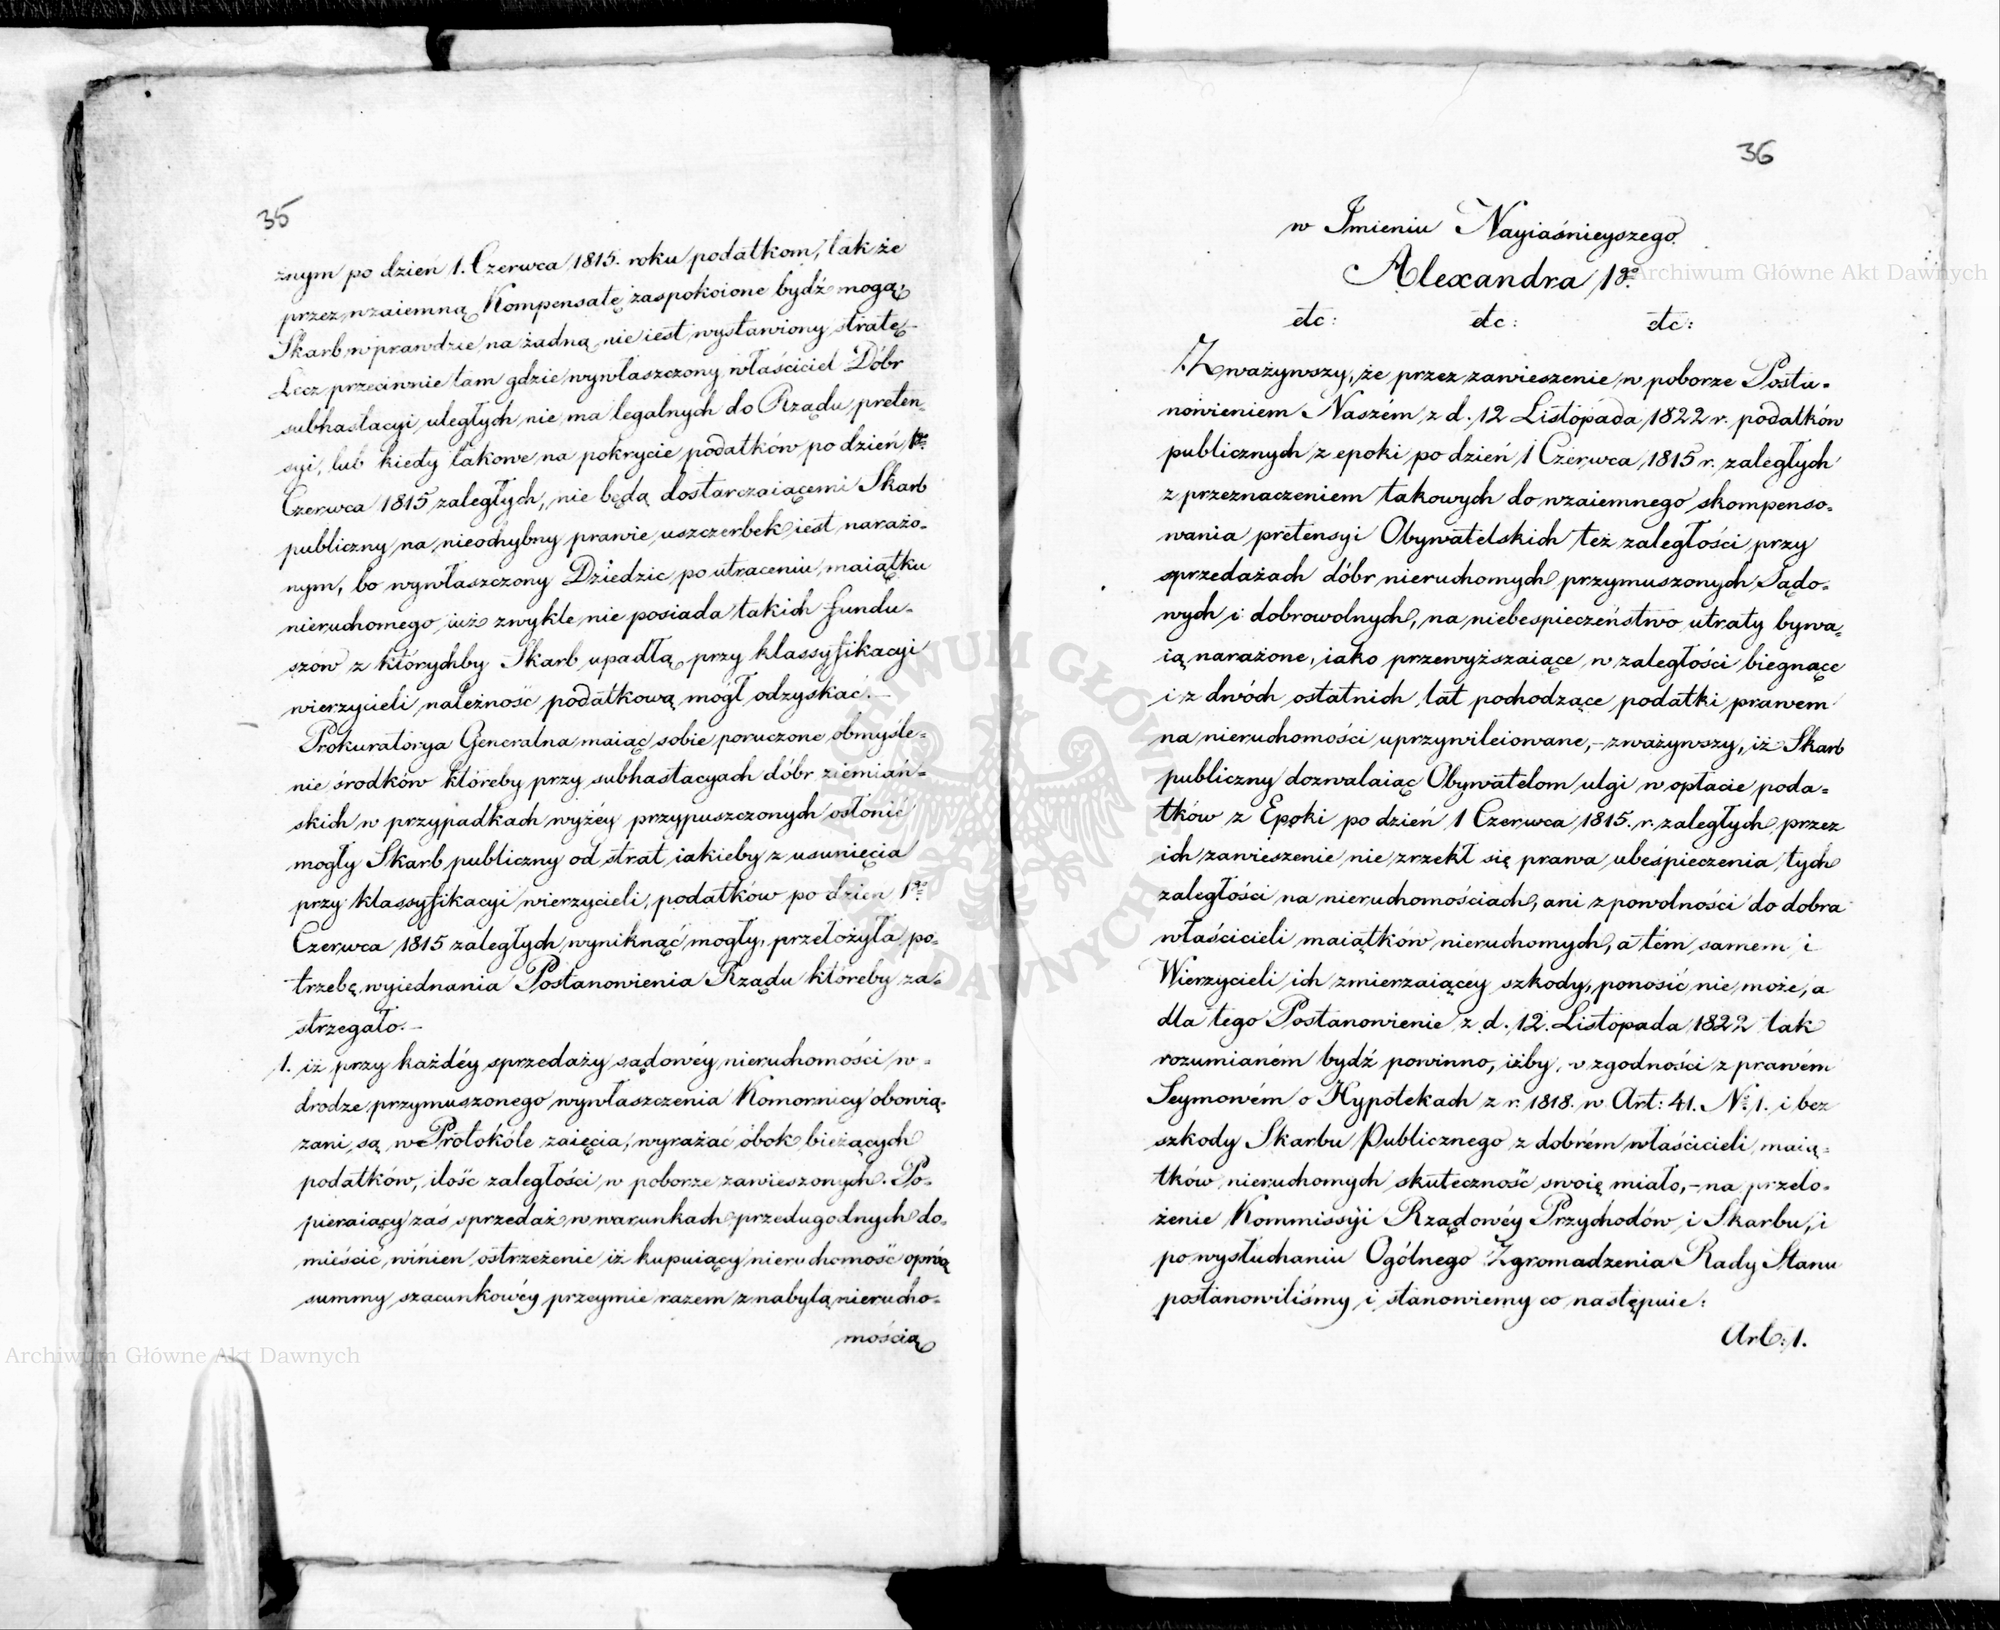 35
żnym po dzień 1. Czerwca 1815. roku podatkom, tak że
przez wzaiemną Kompensatę zaspokoione bydź mogą,
Skarb wprawdzie na żadną nie iest wystawiony stratę
Lecz przeciwnie tam gdzie wywłaszczony właściciel Dóbr
subhastacyi uległych nie ma legalnych do Rządu preten-
syi, lub kiedy takowe na pokrycie podatków po dzień 1go
Czerwca 1815 zaległych, nie będą dostarczaiącemi Skarb
publiczny na nieochybny prawie uszczerbek iest narażo-
nym, bo wywłaszczony Dziedzic po utraceniu maiątku
nieruchomego iuż zwykle nie posiada takich fundu-
szów z którychby Skarb upadłą przy klassyfikacyi
wierzycieli należność podatkową mógł odzyskać.—
Prokuratorya Generalna maiąc sobie poruczone obmyśle-
nie środków któreby przy subhastacyach dóbr ziemiań-
skich w przypadkach wyżéy przypuszczonych osłonić
mogły Skarb publiczny od strat iakieby z usunięcia
przy klassyfikacyi wierzycieli, podatków po dzień 1go
Czerwca 1815 zaległych wyniknąć mogły, przełożyła po-
trzebę wyiednania Postanowienia Rządu któreby za-
strzegało.—
1. iż przy każdéy sprzedaży sądowéy nieruchomości w-
drodze przymuszonego wywłaszczenia Komornicy obowią-
zani są w Protokóle zaięcia, wyrażać obok bieżących
podatków, ilość zaległości w poborze zawieszonych. Po-
pieraiący zaś sprzedaż w warunkach przedugodnych do-
mieścić winien ostrzeżenie iż kupuiący nieruchomość oprócz
summy szacunkowéy przeymie razem z nabytą nierucho-
mością
36
w Imieniu Nayiaśnieyszego
Alexandra 1go
etc: etc: etc:
Zważywszy, że przez zawieszenie w poborze Posta-
nowieniem Naszém z d. 12 Listopada 1822 r. podatków
publicznych z epoki po dzień 1 Czerwca 1815 r. zaległych
z przeznaczeniem takowych do wzaiemnego skompenso-
wania pretensyi Obywatelskich też zaległości przy
sprzedażach dóbr nieruchomych przymuszonych Sądo-
wych i dobrowolnych, na niebespieczeństwo utraty bywa-
ią narażone, iako przewyższaiące w zaległości biegnące
i z dwóch ostatnich lat pochodzące podatki prawem
na nieruchomości uprzywileiowane,— zważywszy, iż Skarb
publiczny dozwalaiąc Obywatelom ulgi w opłacie poda-
tków z Epoki po dzień 1 Czerwca 1815. r. zaległych przez
ich zawieszenie nie zrzekł się prawa ubeśpieczenia tych
zaległości na nieruchomościach, ani z powolności do dobra
właścicieli maiątków nieruchomych, a tém samem i
Wierzycieli ich zmierzaiącéy szkody, ponosić nie może, a
dla tego Postanowienie z d. 12. Listopada 1822 tak
rozumianém bydź powinno, iżby w zgodności z prawém
Seymowém o Hypotekach z r. 1818. w Art: 41. No 1. i bez
szkody Skarbu Publicznego z dobrém właścicieli maią-
tków nieruchomych skuteczność swoię miało,— na przeło-
żenie Kommissyi Rządowéy Przychodów i Skarbu, i
po wysłuchaniu Ogólnego Zgromadzenia Rady Stanu
postanowiliśmy i stanowiemy co następuie:
Art: 1.
Archiwum Główne Akt Dawnych
Archiwum Główne Akt Dawnych
ARCHIWUM GŁÓWNE AKT DAWNYCH